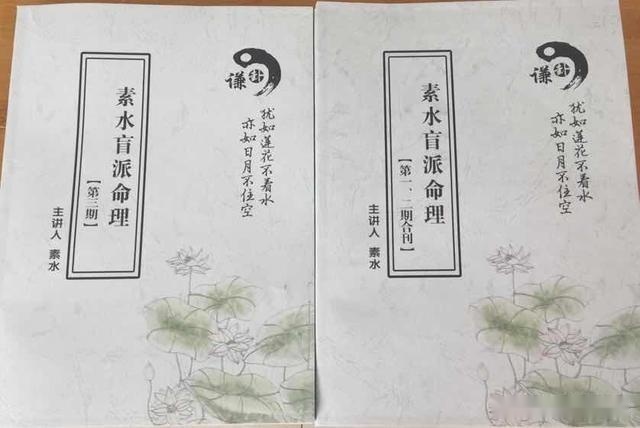 谦
犹如莲花不着水
亦如日月不住空
素水盲派命理
【第三期】
主讲人 素水
谦
犹如莲花不着水
亦如日月不住空
素水盲派命理
【第一、二期合刊】
主讲人 素水